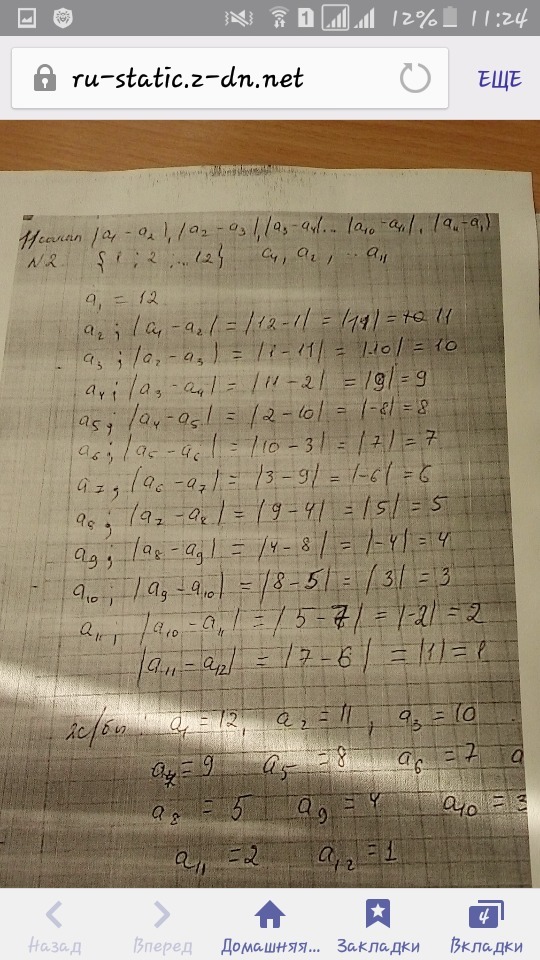 12% 11:24
1
ru-static.z-dn.net
ЕЩЕ
|a₁ - a₂|, |a₂ - a₃|, |a₃ - a₄|... |a₁₀ - a₁₁|, |a₁₁ - a₁|
N2 {1; 2 ... 12} a₁, a₂, ... a₁₁
a₁ = 12
a₂; |a₁ - a₂| = |12 - 1| = |11| = 11
a₃; |a₂ - a₃| = |1 - 11| = |-10| = 10
a₄; |a₃ - a₄| = |11 - 2| = |9| = 9
a₅; |a₄ - a₅| = |2 - 10| = |-8| = 8
a₆; |a₅ - a₆| = |10 - 3| = |7| = 7
a₇; |a₆ - a₇| = |3 - 9| = |-6| = 6
a₈; |a₇ - a₈| = |9 - 4| = |5| = 5
a₉; |a₈ - a₉| = |4 - 8| = |-4| = 4
a₁₀; |a₉ - a₁₀| = |8 - 5| = |3| = 3
a₁₁; |a₁₀ - a₁₁| = |5 - 7| = |-2| = 2
|a₁₁ - a₁₂| = |7 - 6| = |1| = 1
a₁ = 12, a₂ = 11, a₃ = 10
a₄ = 9 a₅ = 8 a₆ = 7 a
a₈ = 5 a₉ = 4 a₁₀ = 3
a₁₁ = 2 a₁₂ = 1
Назад
Вперед
Домашняя...
Закладки
4
Вкладки